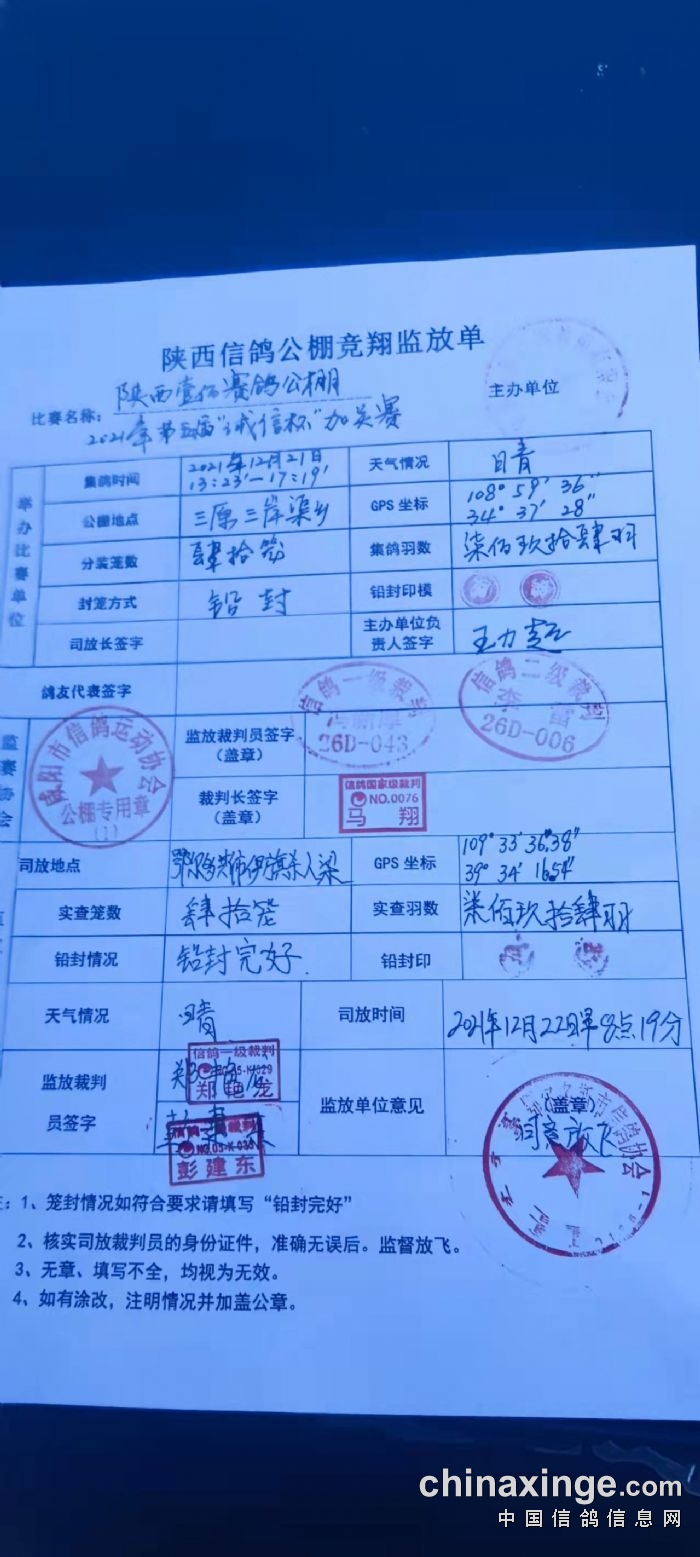 陕西信鸽公棚竞翔监放单
比赛名称：陕西壹佰赛鸽公棚 主办单位
2021年第五届"诚信杯"加关赛
举办比赛单位
集鸽时间 2021年12月21日 13:23'—17:19' 天气情况 晴
公棚地点 三原三岸渠乡 GPS 坐标 108° 59' 36" 34° 37' 28"
分装笼数 肆拾笼 集鸽羽数 柒佰玖拾肆羽
封笼方式 铅封 铅封印模
司放长签字 主办单位负责人签字 王力超
鸽友代表签字
监赛协会
咸阳市信鸽运动协会
公棚专用章
(1)
监放裁判员签字（盖章） 信鸽一级裁判 26D-043 信鸽二级裁判 李富 26D-006
裁判长签字（盖章） 信鸽国家级裁判 NO.0076 马翔
司放地点 GPS 坐标 109° 33' 36.38" 39° 34' 16.54"
实查笼数 肆拾笼 实查羽数 柒佰玖拾肆羽
铅封情况 铅封完好 铅封印
天气情况 晴 司放时间 2021年12月22日早8点19分
监放裁判员签字 信鸽一级裁判 郑艳龙 监放单位意见 （盖章） 同意放飞
信鸽一级裁判 彭建东
注：1、笼封情况如符合要求请填写"铅封完好"
2、核实司放裁判员的身份证件，准确无误后。监督放飞。
3、无章、填写不全，均视为无效。
4、如有涂改，注明情况并加盖公章。
chinaxinge.com
中国信鸽信息网